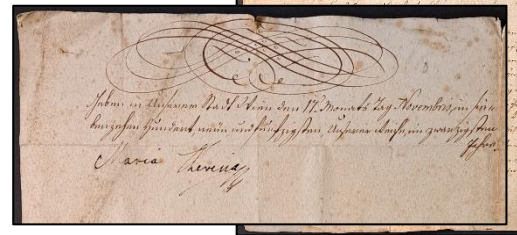 Geben in Unserer Stadt Wien den 17. Monats Tag Novembris, in sie-
benzehen hundert neun und fünfzigsten, Unserer Reiche, im zwanzigsten
Jahre.
Maria Theresia